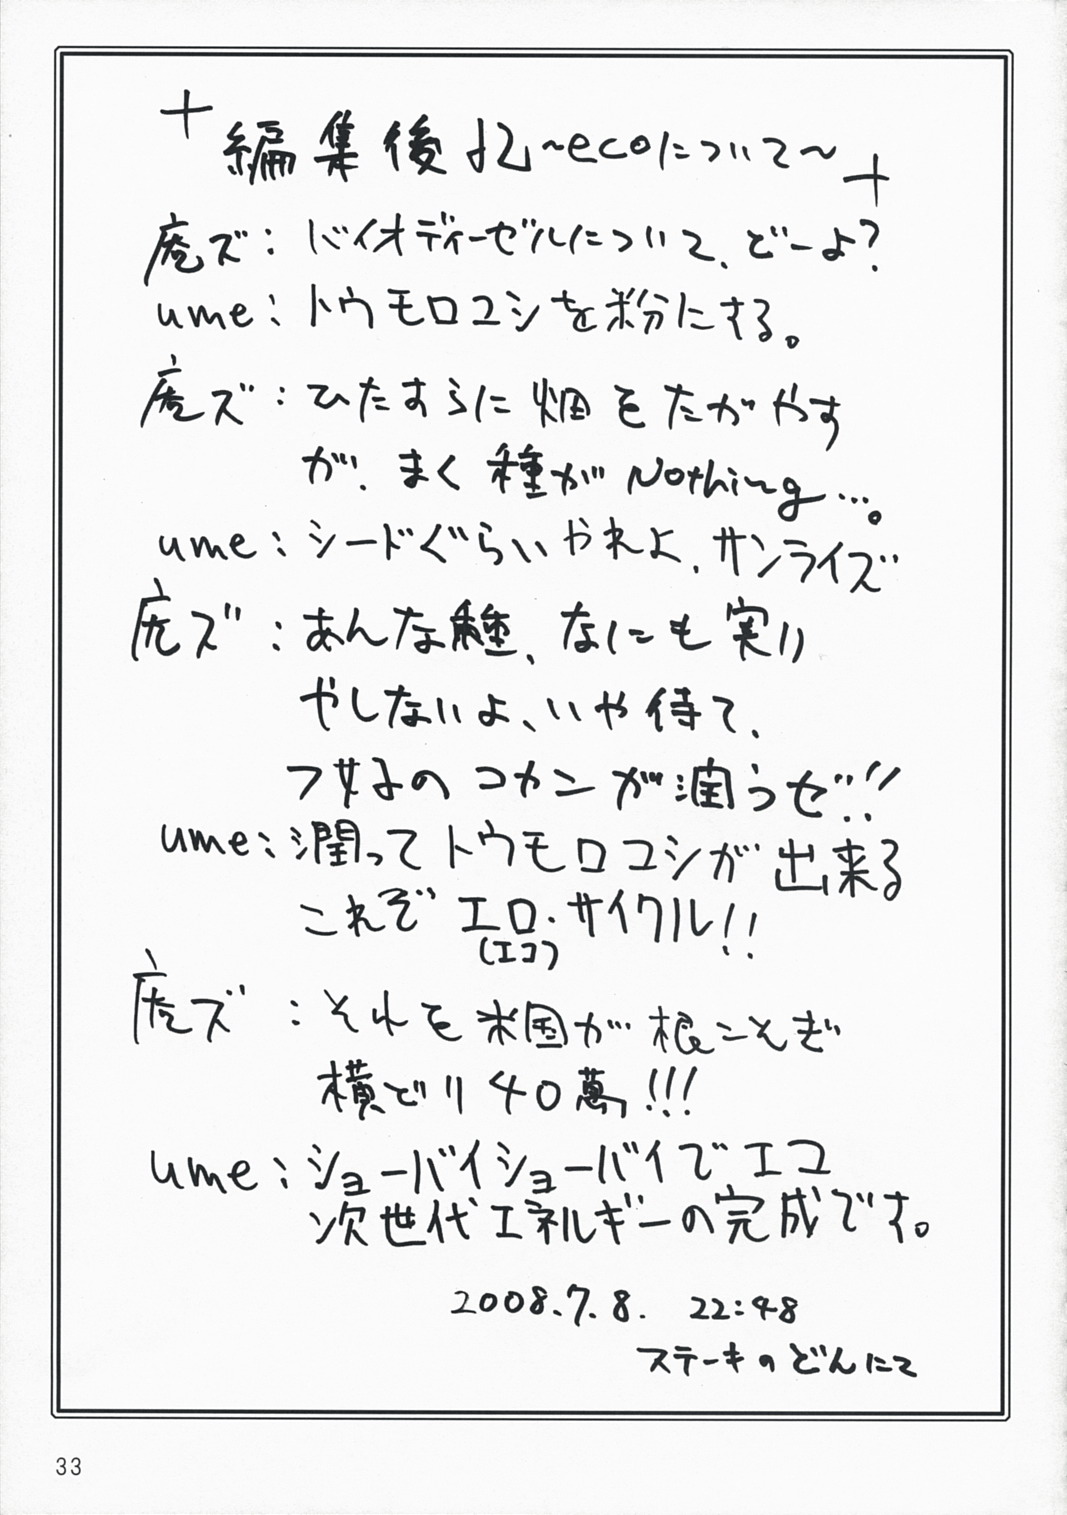 編集後記~ecoについて~
鹿ズ: バイオディーゼルについて、どーよ?
ume: トウモロコシを粉にする。
鹿ズ: ひたすらに畑をたがやす
が、まく種がNothing…。
ume: シードぐらいやれよ、サンライズ
鹿ズ: あんな種、なにも実り
やしないよ、いや待て、
フ女子のコカンが潤うゼ!!
ume: 潤ってトウモロコシが出来る
これぞエロ・サイクル!!
(エコ)
鹿ズ: それを米国が根こそぎ
横どり40萬!!!
ume: ショーバイショーバイでエコ
次世代エネルギーの完成です。
2008.7.8. 22:48
ステーキのどんにて
33